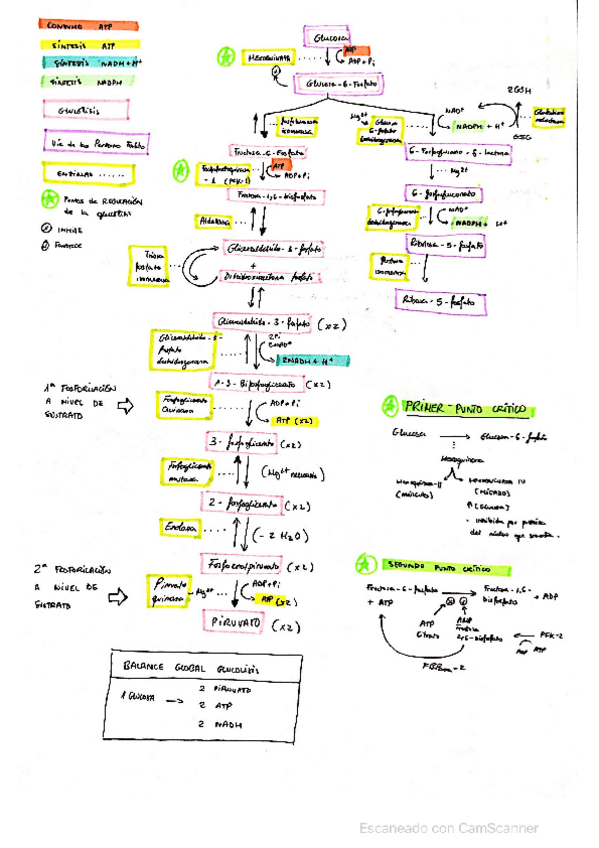 CONSUMO ATP
SÍNTESIS ATP
SÍNTESIS NADH+H⁺
SÍNTESIS NADPH
GLUCÓLISIS
Vía de las Pentosas Fosfato
ENZIMAS ·····
Puntos de REGULACIÓN
de la glucólisis
INHIBE
GLUCOSA
HEXOQUINASA ·····
ATP
ADP+Pi
GLUCOSA-6-Fosfato
Fosfoglucosa
isomerasa
Fructosa-6-Fosfato
Fosfofructoquinasa
-1 (PFK-1)
ATP
ADP+Pi
Fructosa-1,6-bisfosfato
Aldolasa
Gliceraldehído-3-fosfato
+
Dihidroxiacetona fosfato
Triosa
fosfato
isomerasa
Gliceraldehído-3-fosfato (x2)
Gliceraldehído-3-
fosfato
deshidrogenasa
2Pi
2NAD⁺
2NADH+H⁺
1-3-Bifosfoglicerato (x2)
1ª FOSFORILACIÓN
A NIVEL DE
SUSTRATO
Fosfoglicerato
Quinasa
ADP+Pi
ATP (x2)
3-fosfoglicerato (x2)
Fosfoglicerato
mutasa
(Mg²⁺ necesario)
2-fosfoglicerato (x2)
Enolasa
(-2 H₂O)
Fosfoenolpiruvato (x2)
2ª FOSFORILACIÓN
A NIVEL DE
SUSTRATO
Piruvato
quinasa
Mg²⁺
ADP+Pi
ATP (x2)
PIRUVATO (x2)
BALANCE GLOBAL GLUCÓLISIS
1 GLUCOSA →
2 PIRUVATO
2 ATP
2 NADH
Mg²⁺
Glucosa
6-fosfato
deshidrogenasa
NAD⁺
NADPH + H⁺
2GSH
GSSG
Glutatión
reductasa
6-Fosfoglucono-δ-lactona
Mg²⁺
6-fosfogluconato
6-fosfogluconato
deshidrogenasa
NAD⁺
NADPH + H⁺
Ribulosa-5-fosfato
isomerasa
Ribosa-5-fosfato
PRIMER PUNTO CRÍTICO
Glucosa → Glucosa-6-fosfato
Hexoquinasa
Hexoquinasa-II
(músculo)
Hexoquinasa IV
(HÍGADO)
↑[Glucosa]
- inhibida por proteína
del núcleo que secuestra
SEGUNDO PUNTO CRÍTICO
Fructosa-6-fosfato → Fructosa-1,6-
bisfosfato + ADP
+ ATP
ATP
Citrato
AMP
Fructosa
2,6-bisfosfato
PFK-2
ADP ATP
FBPasa-2
Escaneado con CamScanner